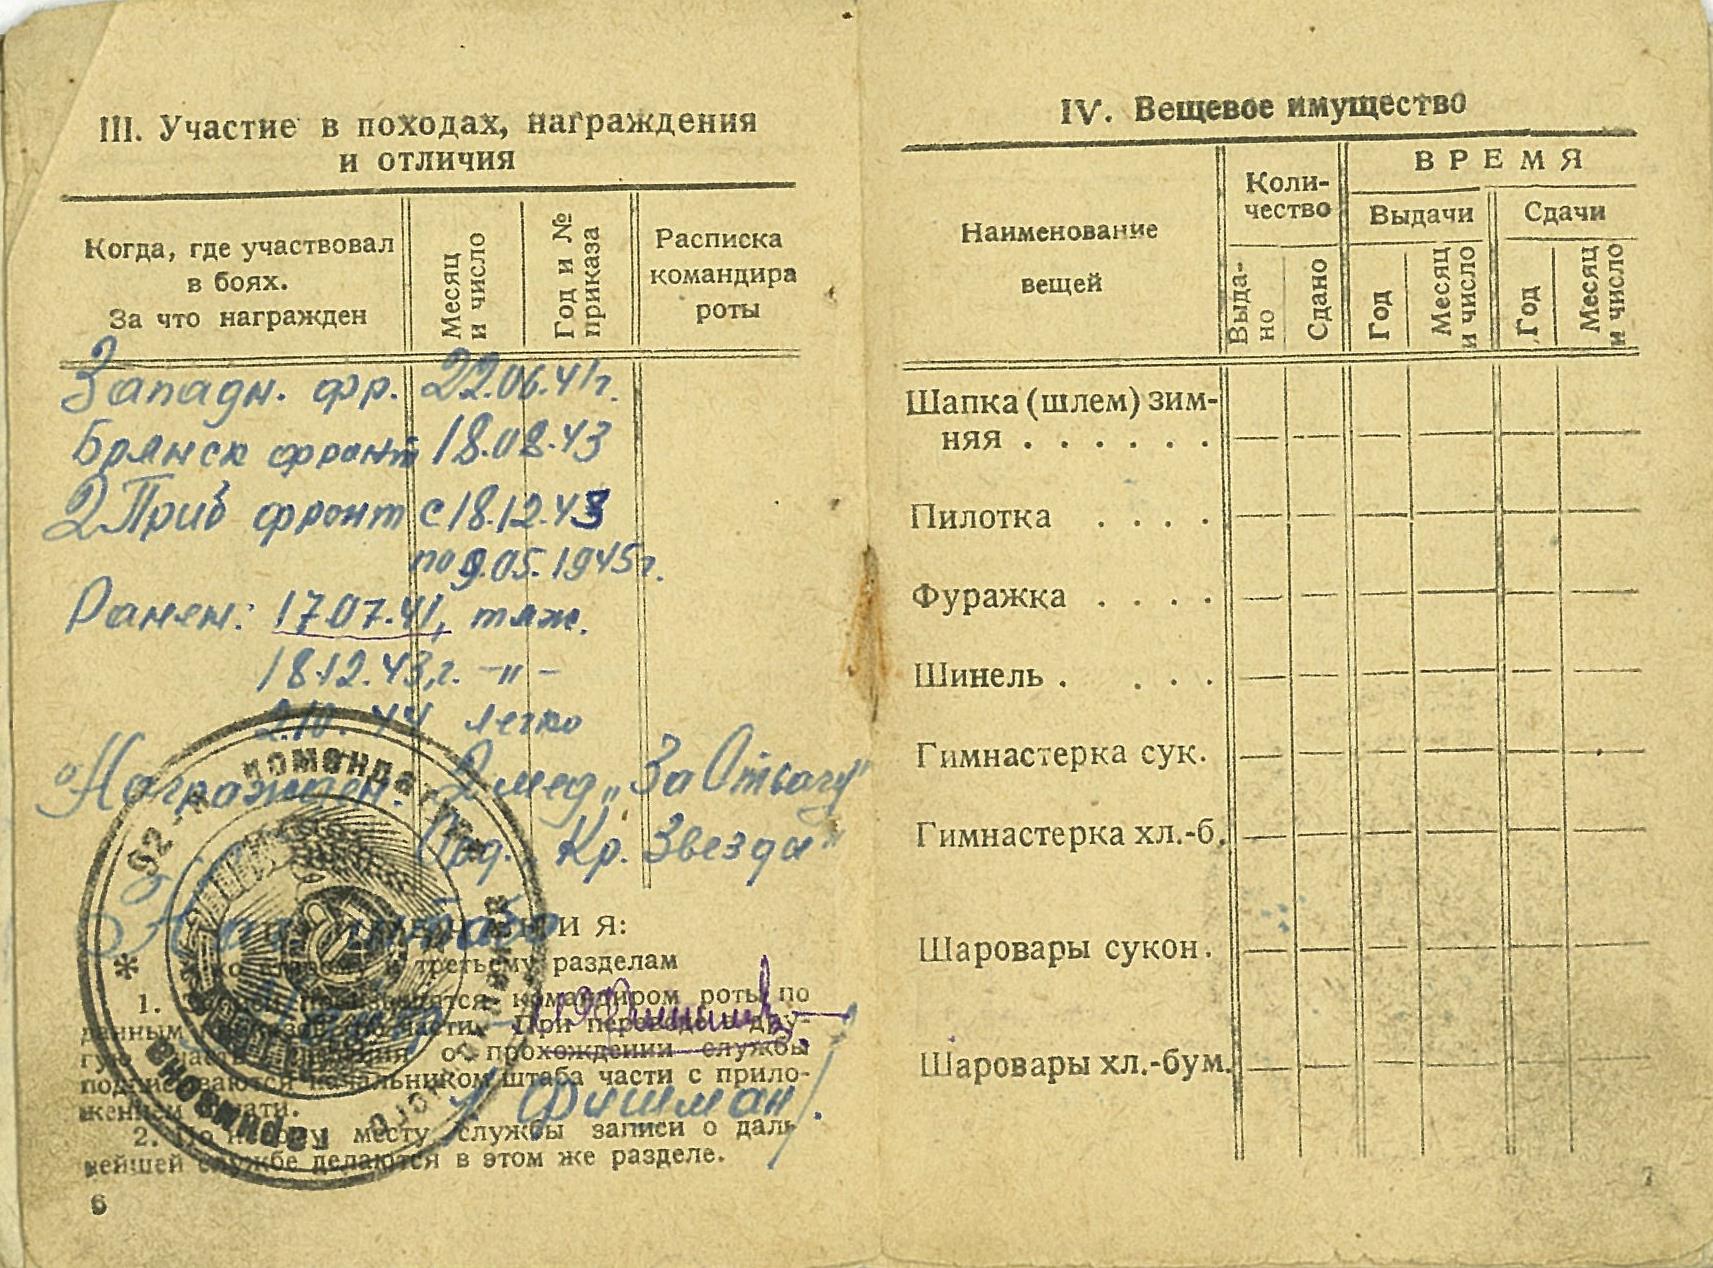 III. Участие в походах, награждения
и отличия
Когда, где участвовал
в боях.
За что награжден
Месяц
и число
Год и №
приказа
Расписка
командира
роты
Западн. фр. 22.06.41г.
Брянск фронт 18.08.43
2 Приб фронт с 18.12.43
по 9.05.1945г.
Ранен: 17.07.41, тяж.
18.12.43,г. -"-
2.10.44 легко
Награжден: 2 мед „За Отвагу"
Орд. „Кр. Звезда"
И Я:
третьему разделам
1. командиром роты по
данным части. При переводе в дру-
гую о прохождении службы
подписываются начальником штаба части с прило-
жением печати.
/Фишман/.
2. По новому месту службы записи о даль-
нейшей службе делаются в этом же разделе.
92-я комендатура
гарнизона
6
IV. Вещевое имущество
Наименование
вещей
Коли-
чество
ВРЕМЯ
Выдачи
Сдачи
Выда-
но
Сдано
Год
Месяц
и число
Год
Месяц
и число
Шапка (шлем) зим-
няя . . . . . .
Пилотка . . . .
Фуражка . . . .
Шинель . . . .
Гимнастерка сук.
Гимнастерка хл.-б.
Шаровары сукон.
Шаровары хл.-бум.
7